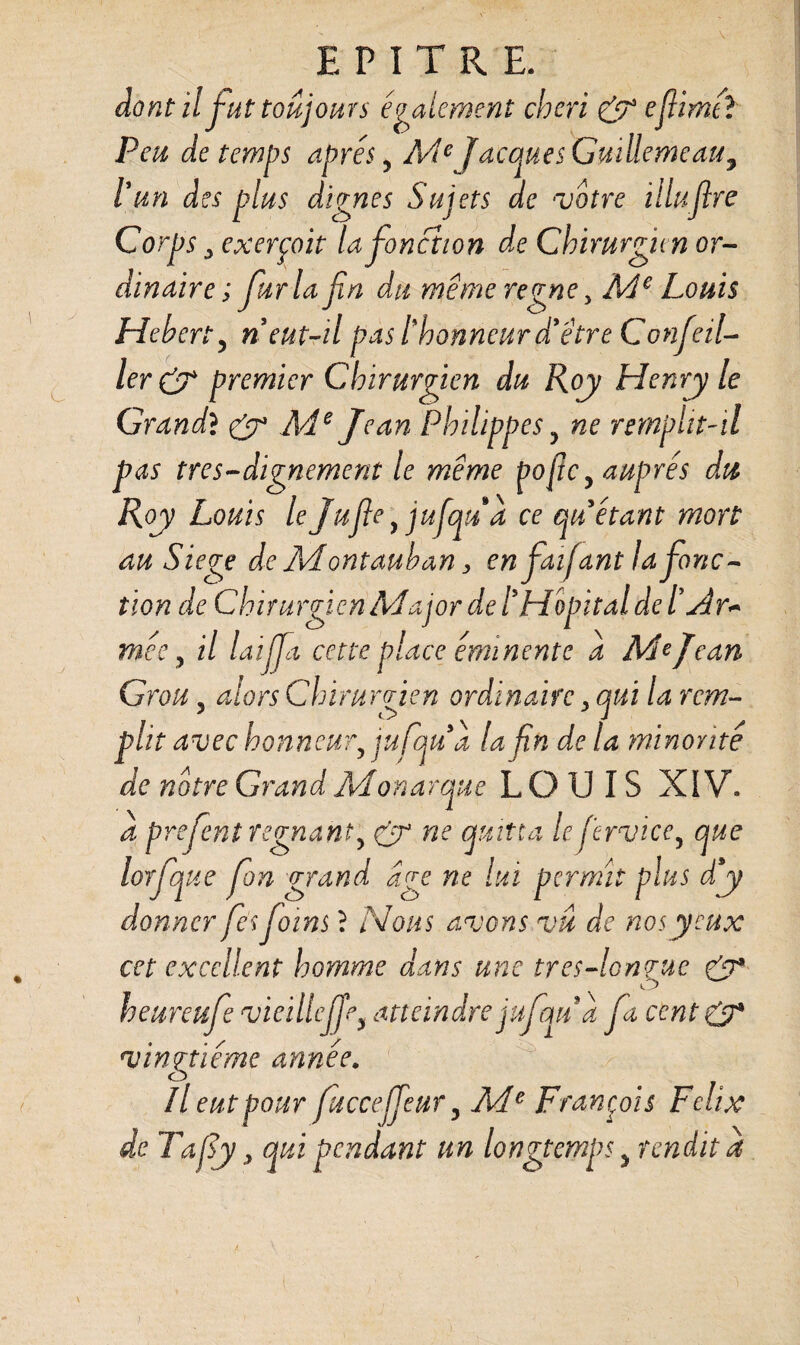 EPITRE.
dont il fut toûjours également cheri & eſtimé?
Peu de temps aprés, Me Jacques Guillemeau,
l'un des plus dignes Sujets de vôtre illuſtre
Corps, exerçoit la fonction de Chirurgien or-
dinaire; ſur la fin du même regne, Me Louis
Hebert, n'eut-il pas l'honneur d'être Conſeil-
ler & premier Chirurgien du Roy Henry le
Grand? & Me Jean Philippes, ne remplit-il
pas tres-dignement le même poſte, auprés du
Roy Louis le Juſte, juſqu'à ce qu'étant mort
au Siege de Montauban, en faiſant la fonc-
tion de Chirurgien Major de l'Hôpital de l'Ar-
mée, il laiſſa cette place éminente à Me Jean
Grou, alors Chirurgien ordinaire, qui la rem-
plit avec honneur, juſqu'à la fin de la minorité
de nôtre Grand Monarque LOUIS XIV.
à preſent regnant, & ne quitta le ſervice, que
lorſque ſon grand âge ne lui permît plus d'y
donner ſes ſoins? Nous avons vû de nos yeux
cet excellent homme dans une tres-longue &
heureuſe vieilleſſe, atteindre juſqu'à ſa cent &
vingtiéme année.
Il eut pour ſucceſſeur, Me François Felix
de Taſſy, qui pendant un longtemps, rendit à